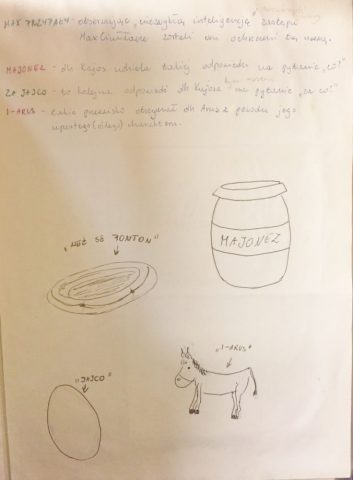 MAX PRZYPAŁY - obserwując niezwykłą inteligencję zastępu
Maximiliane zostali oni ochrzczeni tą nazwą.
MAJONEZ - dh Kajos udziela takiej odpowiedzi na pytanie „co?"
ZA JAJCO - to kolejna odpowiedź dh Kajosa na pytanie „za co?"
I-ARUŚ - takie przezwisko otrzymał dh Arus z powodu jego
upartego (oślego) charakteru.
„WEŹ SE PONTON"
MAJONEZ
„JAJCO"
„I-ARUS"